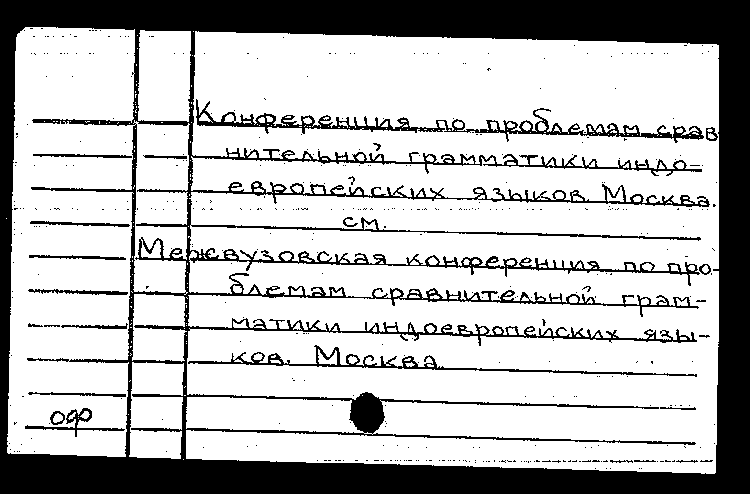 Конференция по проблемам срав
нительной грамматики индо-
европейских языков. Москва.
см.
Межвузовская конференция по про-
блемам сравнительной грам-
матики индоевропейских язы-
ков. Москва.
ОФ